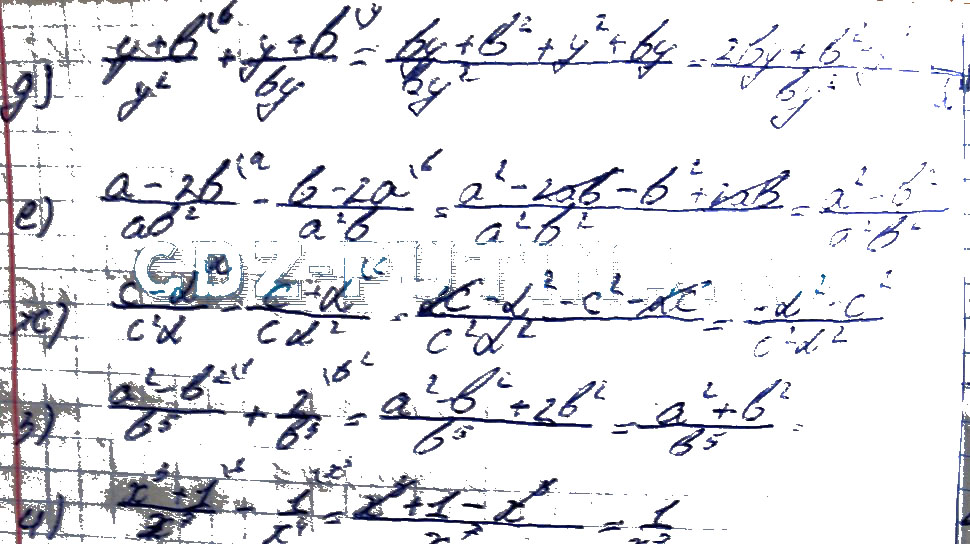 д) (y+b)/y² + (y+b)/by = (by+b²+y²+by)/by² = (2by+b²
е) (a-2b)/ab² - (b-2a)/a²b = (a²-2ab-b²+2ab)/a²b² = (a²-b²)/a²b²
ж) (c-d)/c²d - (c+d)/cd² = (dc-d²-c²-dc)/c²d² = (-d²-c²)/c²d²
з) (a²-b²)/b⁵ + 2/b³ = (a²-b²+2b²)/b⁵ = (a²+b²)/b⁵
и) (x³+1)/x⁷ - 1/x⁴ = (x³+1-x³)/x⁷ = 1/x⁷